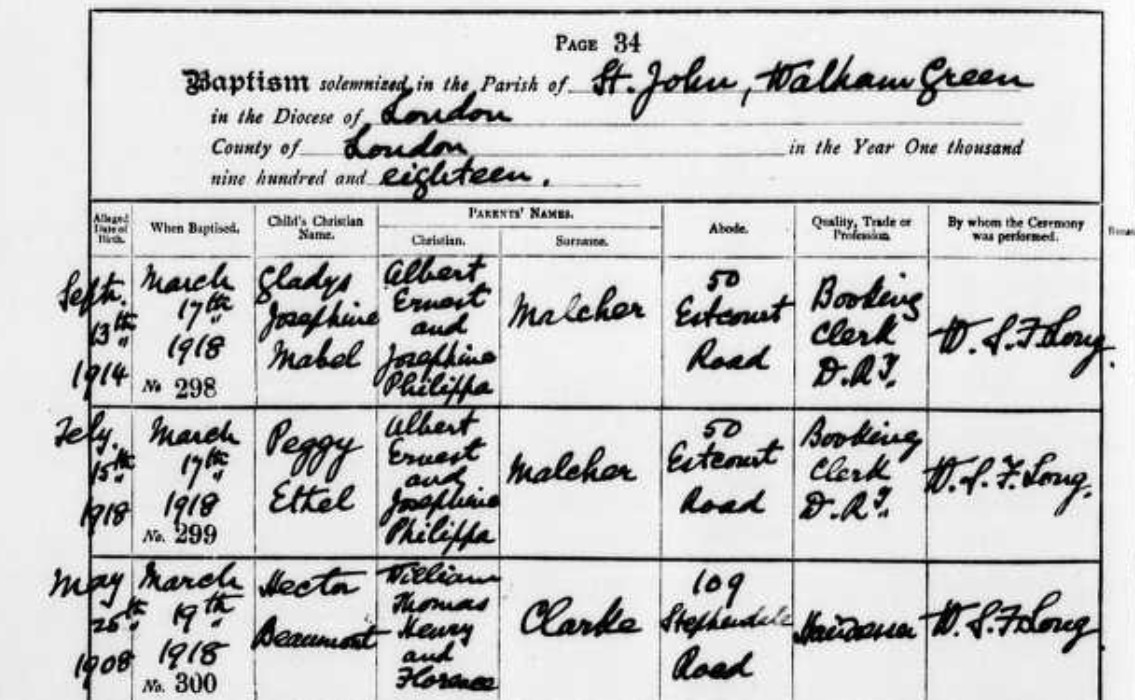 PAGE 34
Baptism solemnized in the Parish of St. John, Walham Green
in the Diocese of London
County of London in the Year One thousand
nine hundred and eighteen.
Alleged Date of Birth.
When Baptised.
Child's Christian Name.
PARENTS' NAMES.
Christian.
Surname.
Abode.
Quality, Trade or Profession.
By whom the Ceremony was performed.
Septr.
13th
1914
March
17th
1918
No 298
Gladys
Josephine
Mabel
Albert
Ernest
and
Josephine
Philippa
Malcher
50
Estcourt
Road
Booking
Clerk
W. S. F. Long.
Feby.
15th
1918
March
17th
1918
No. 299
Peggy
Ethel
Albert
Ernest
and
Josephine
Philippa
Malcher
50
Estcourt
Road
Booking
Clerk
W. S. F. Long.
May
1908
March
19th
1918
No. 300
Hector
Beaumont
William
Thomas
Henry
and
Florence
Clarke
109
Stephendale
Road
W. S. F. Long